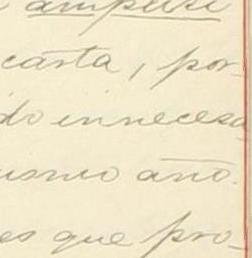 carta, por-
do innecesa
ismo año.
es que pro-